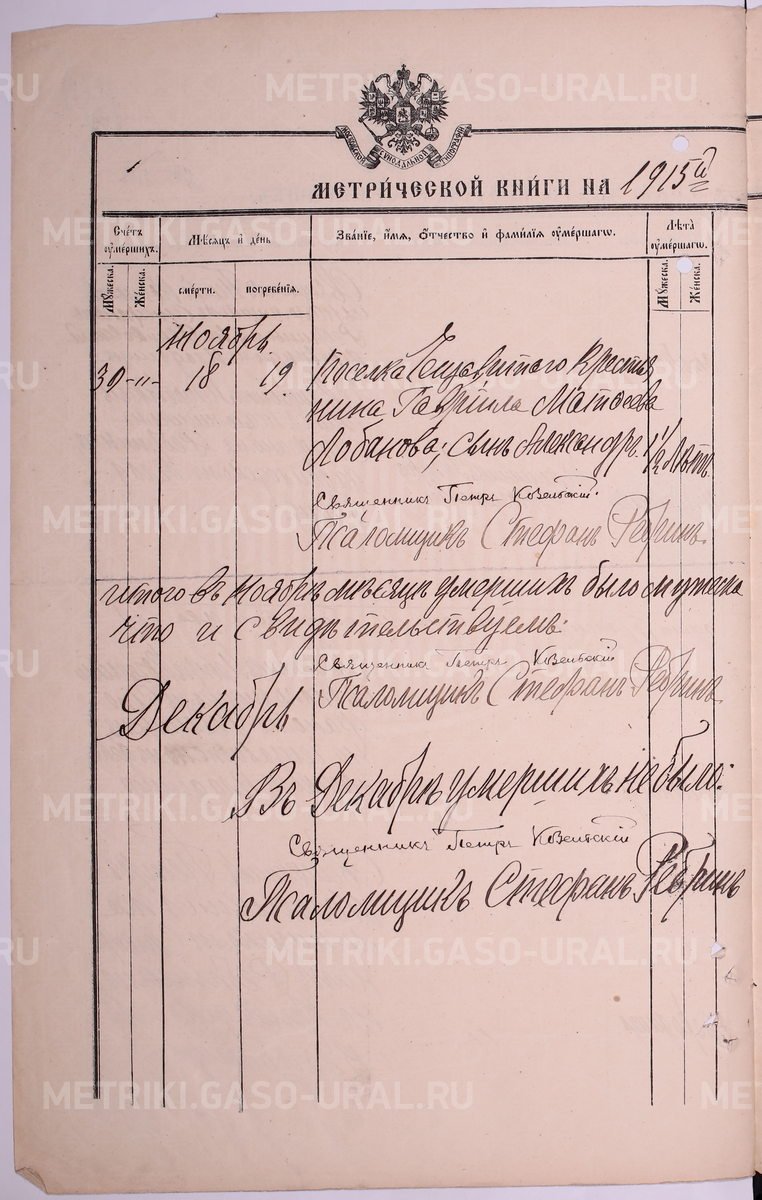 МОСКОВСКОЙ СѴНОДАЛЬНОЙ ТИПОГРАФІИ
МЕТРИ́ЧЕСКОЙ КНИ́ГИ НА 1915й
Счетъ ᲂумершихъ.
Мѣсяцъ и день
Званіе, имя, ѻтчество и фамилія ᲂумершагѡ.
Лѣта ᲂумершагѡ.
Мꙋжеска.
Женска.
смерти.
погребенія.
Мꙋжеска.
Женска.
Ноябрь
30 -"- 18 19 Поселка крестья
нина Гаврiила Матѳеева
Лобанова; сынъ Александръ. 1 1/2 лѣтъ
Священникъ Петръ Козельскій.
Псаломщикъ Стефанъ Ребринъ.
итого въ Ноябрѣ мѣсяцѣ умершихъ было мужеска
что и свидѣтельствуемъ:
Священникъ Петръ Козельскій
Псаломщикъ Стефанъ Ребринъ.
Декабрь
Въ Декабрѣ умершихъ не было:
Священникъ Петръ Козельскій
Псаломщикъ Стефанъ Ребринъ
METRIKI.GASO-URAL.RU